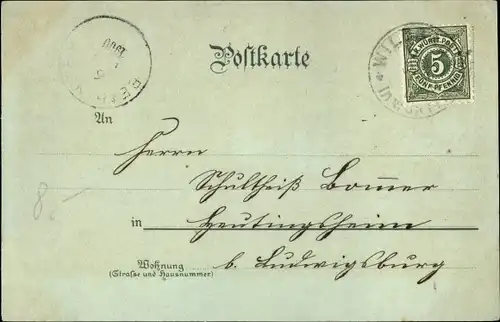 Postkarte
K. WÜRTT. POST
5
FÜNF PFENNIG
An
Herrn
Schultheiß Bommer
in Heutingsheim
Wohnung
(Straße und Hausnummer)
b. Ludwigsburg
8,-